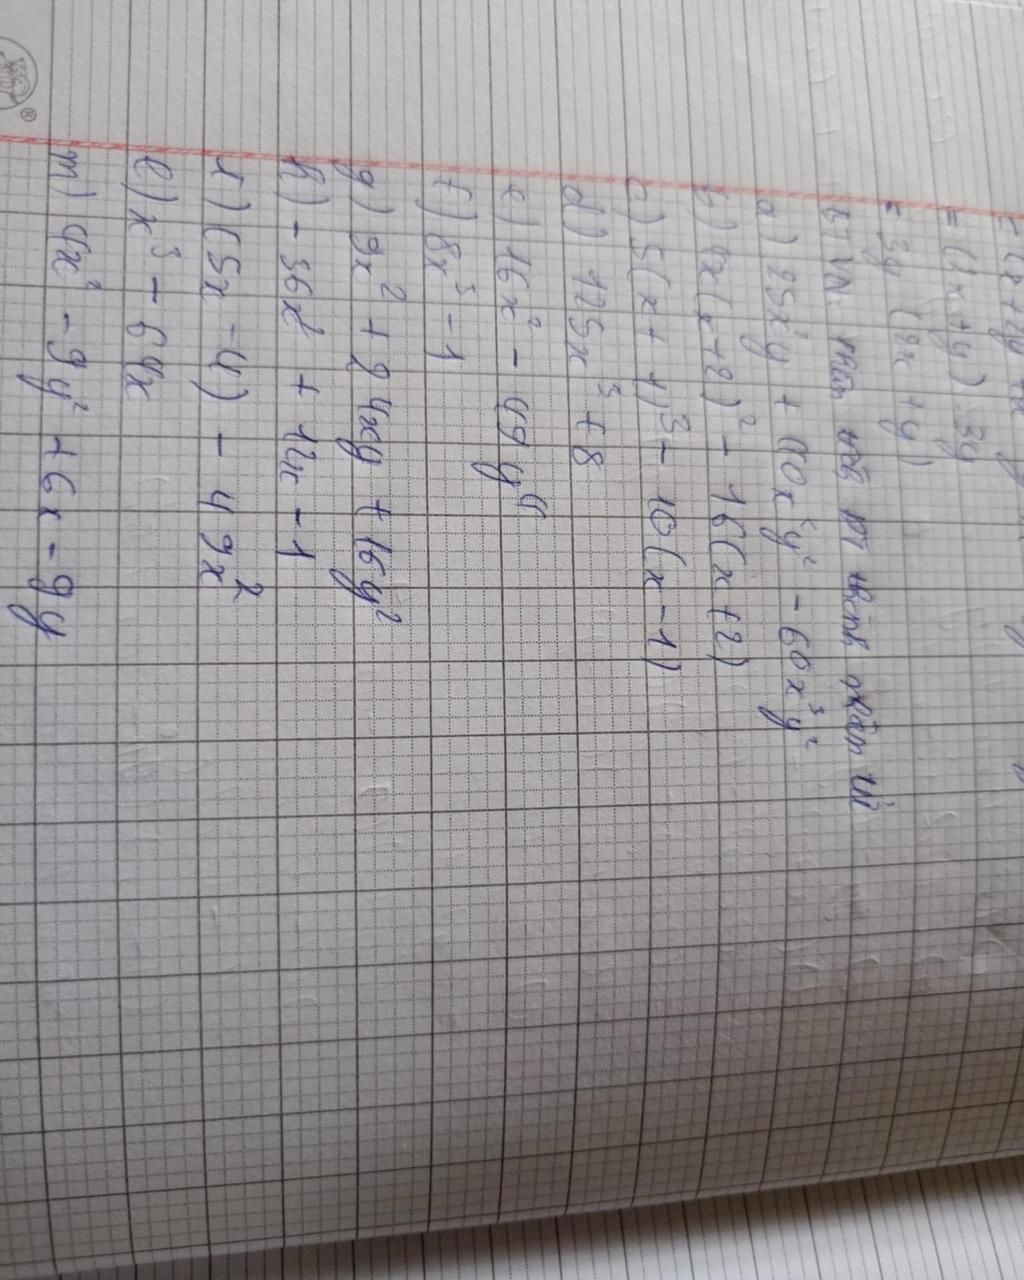 = (2x + y) 3y
= 3y (2x + y)
BTVN:
a) 25x²y + 10x²y² - 60x³y²
b) 4x(x+2)² - 16(x+2)
c) 5(x+y)³ - 10(x-1)
d) 125x³ + 8
e) 16x² - 49y⁴
f) 8x³ - 1
g) 9x² + 24xy + 16y²
h) - 36x² + 12x - 1
i) (5x - 4) - 49x²
l) x³ - 64x
m) 4x² - 9y² + 6x - 9y